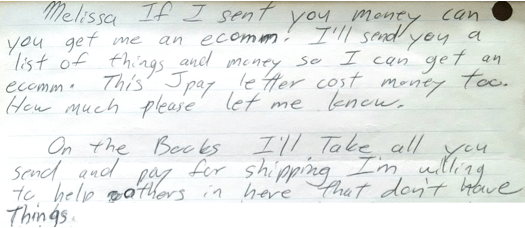 Melissa If I sent you money can
you get me an ecomm. I'll send you a
list of things and money so I can get an
ecomm. This Jpay letter cost money too.
How much please let me know.
On the Books I'll Take all you
send and pay for shipping I'm willing
to help oathers in here that don't Have
Things.